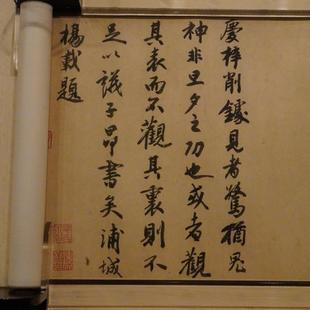 慶梓削鐻見者驚猶鬼
神非旦夕之功也或者觀
其表而不觀其裏則不
足以議子昂書矣浦城
楊載題